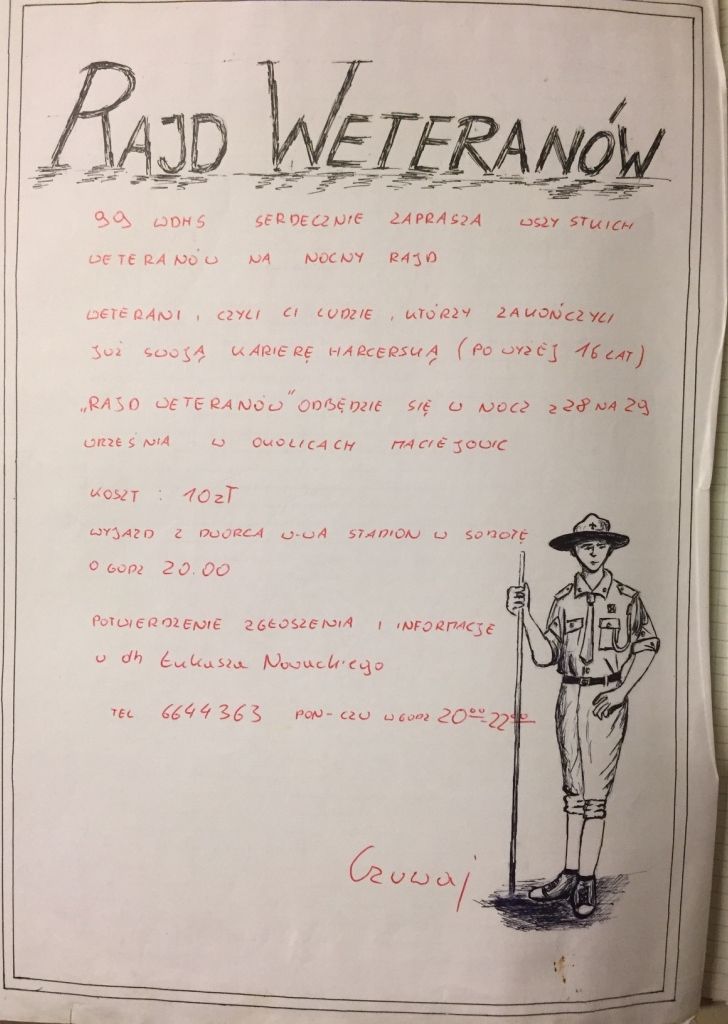 RAJD WETERANÓW
99 WDHS SERDECZNIE ZAPRASZA WSZYSTKICH
WETERANÓW NA NOCNY RAJD
WETERANI, CZYLI CI LUDZIE, KTÓRZY ZAKOŃCZYLI
JUŻ SWOJĄ KARIERĘ HARCERSKĄ (POWYŻEJ 16 LAT)
„RAJD WETERANÓW" ODBĘDZIE SIĘ W NOCZ z 28 NA 29
WRZEŚNIA W OKOLICACH MACIEJOWIC
KOSZT : 10 zł
WYJAZD Z DWORCA W-WA STADION W SOBOTĘ
O GODZ 20.00
POTWIERDZENIE ZGŁOSZENIA I INFORMACJE
U dh Łukasza Nowackiego
TEL 6644363 PON-CZW W GODZ 20⁰⁰-22⁰⁰
Czuwaj